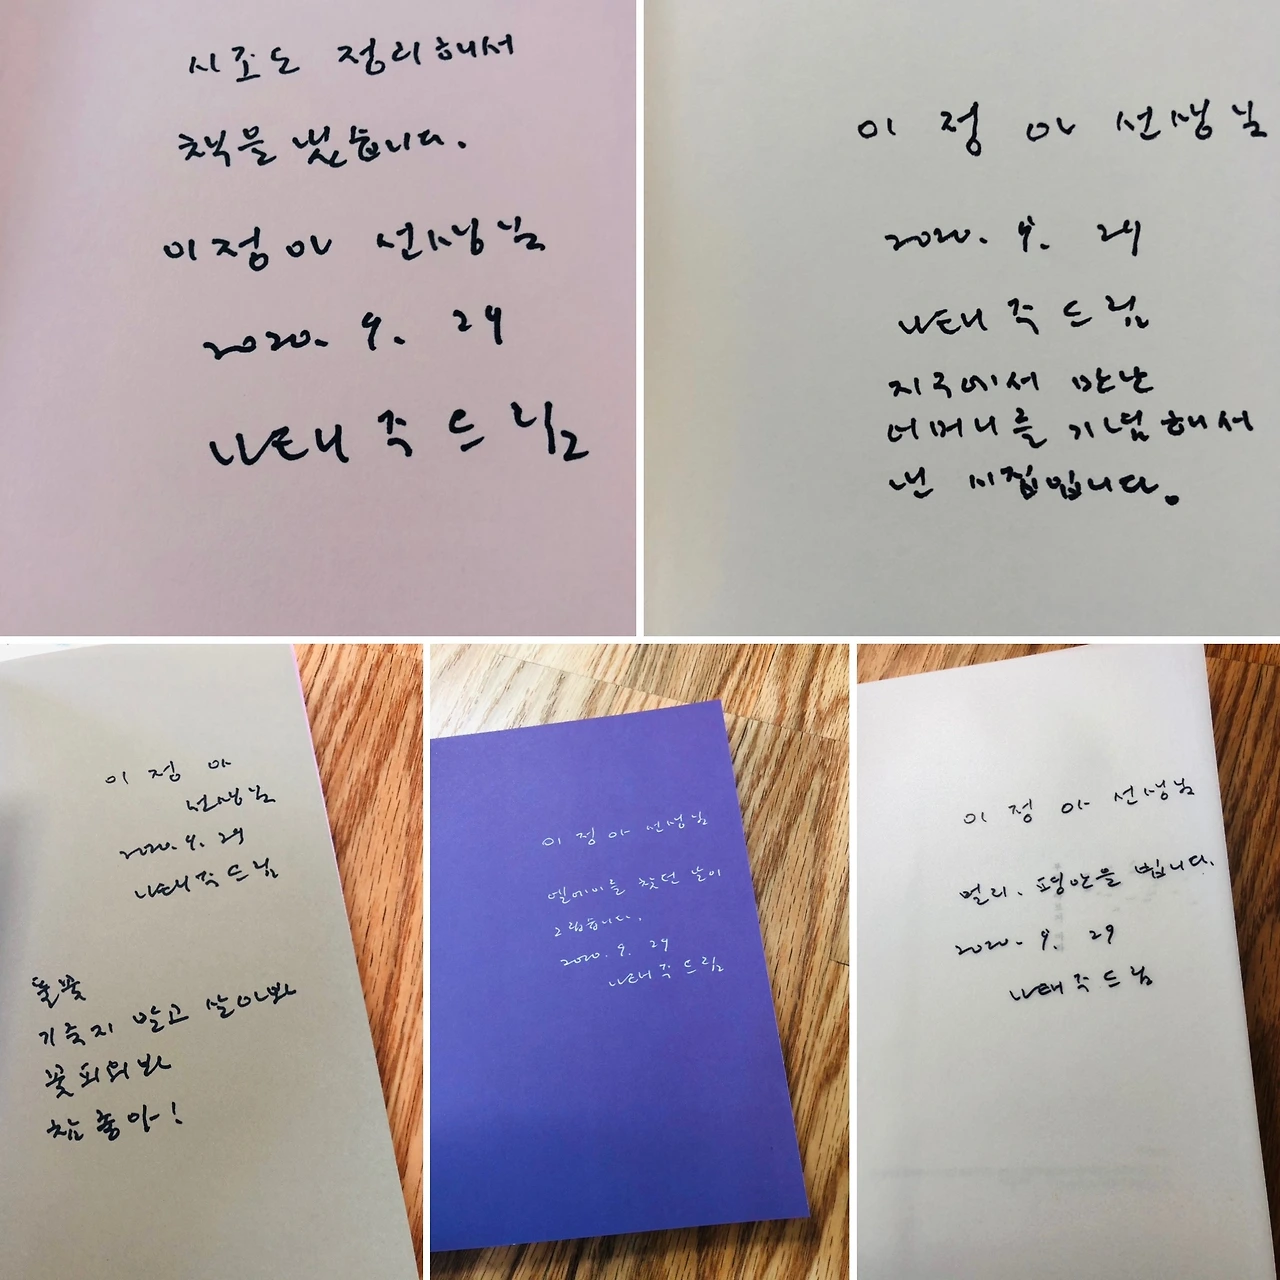 시조도 정리해서
책을 냈습니다.
이정아 선생님
2020. 9. 29
나태주 드림
이 정 아 선생님
2020. 9. 29
나태주 드림
지구에서 만난
어머니를 기념해서
낸 시집입니다.
이 정 아
선생님
2020. 9. 29
나태주 드림
풀꽃
기죽지 말고 살아봐
꽃 피워봐
참 좋아!
이 정 아 선생님
엘에이를 찾던 날이
그립습니다.
2020. 9. 29
나태주 드림
이 정 아 선생님
멀리, 평안을 빕니다.
2020. 9. 29
나태주 드림